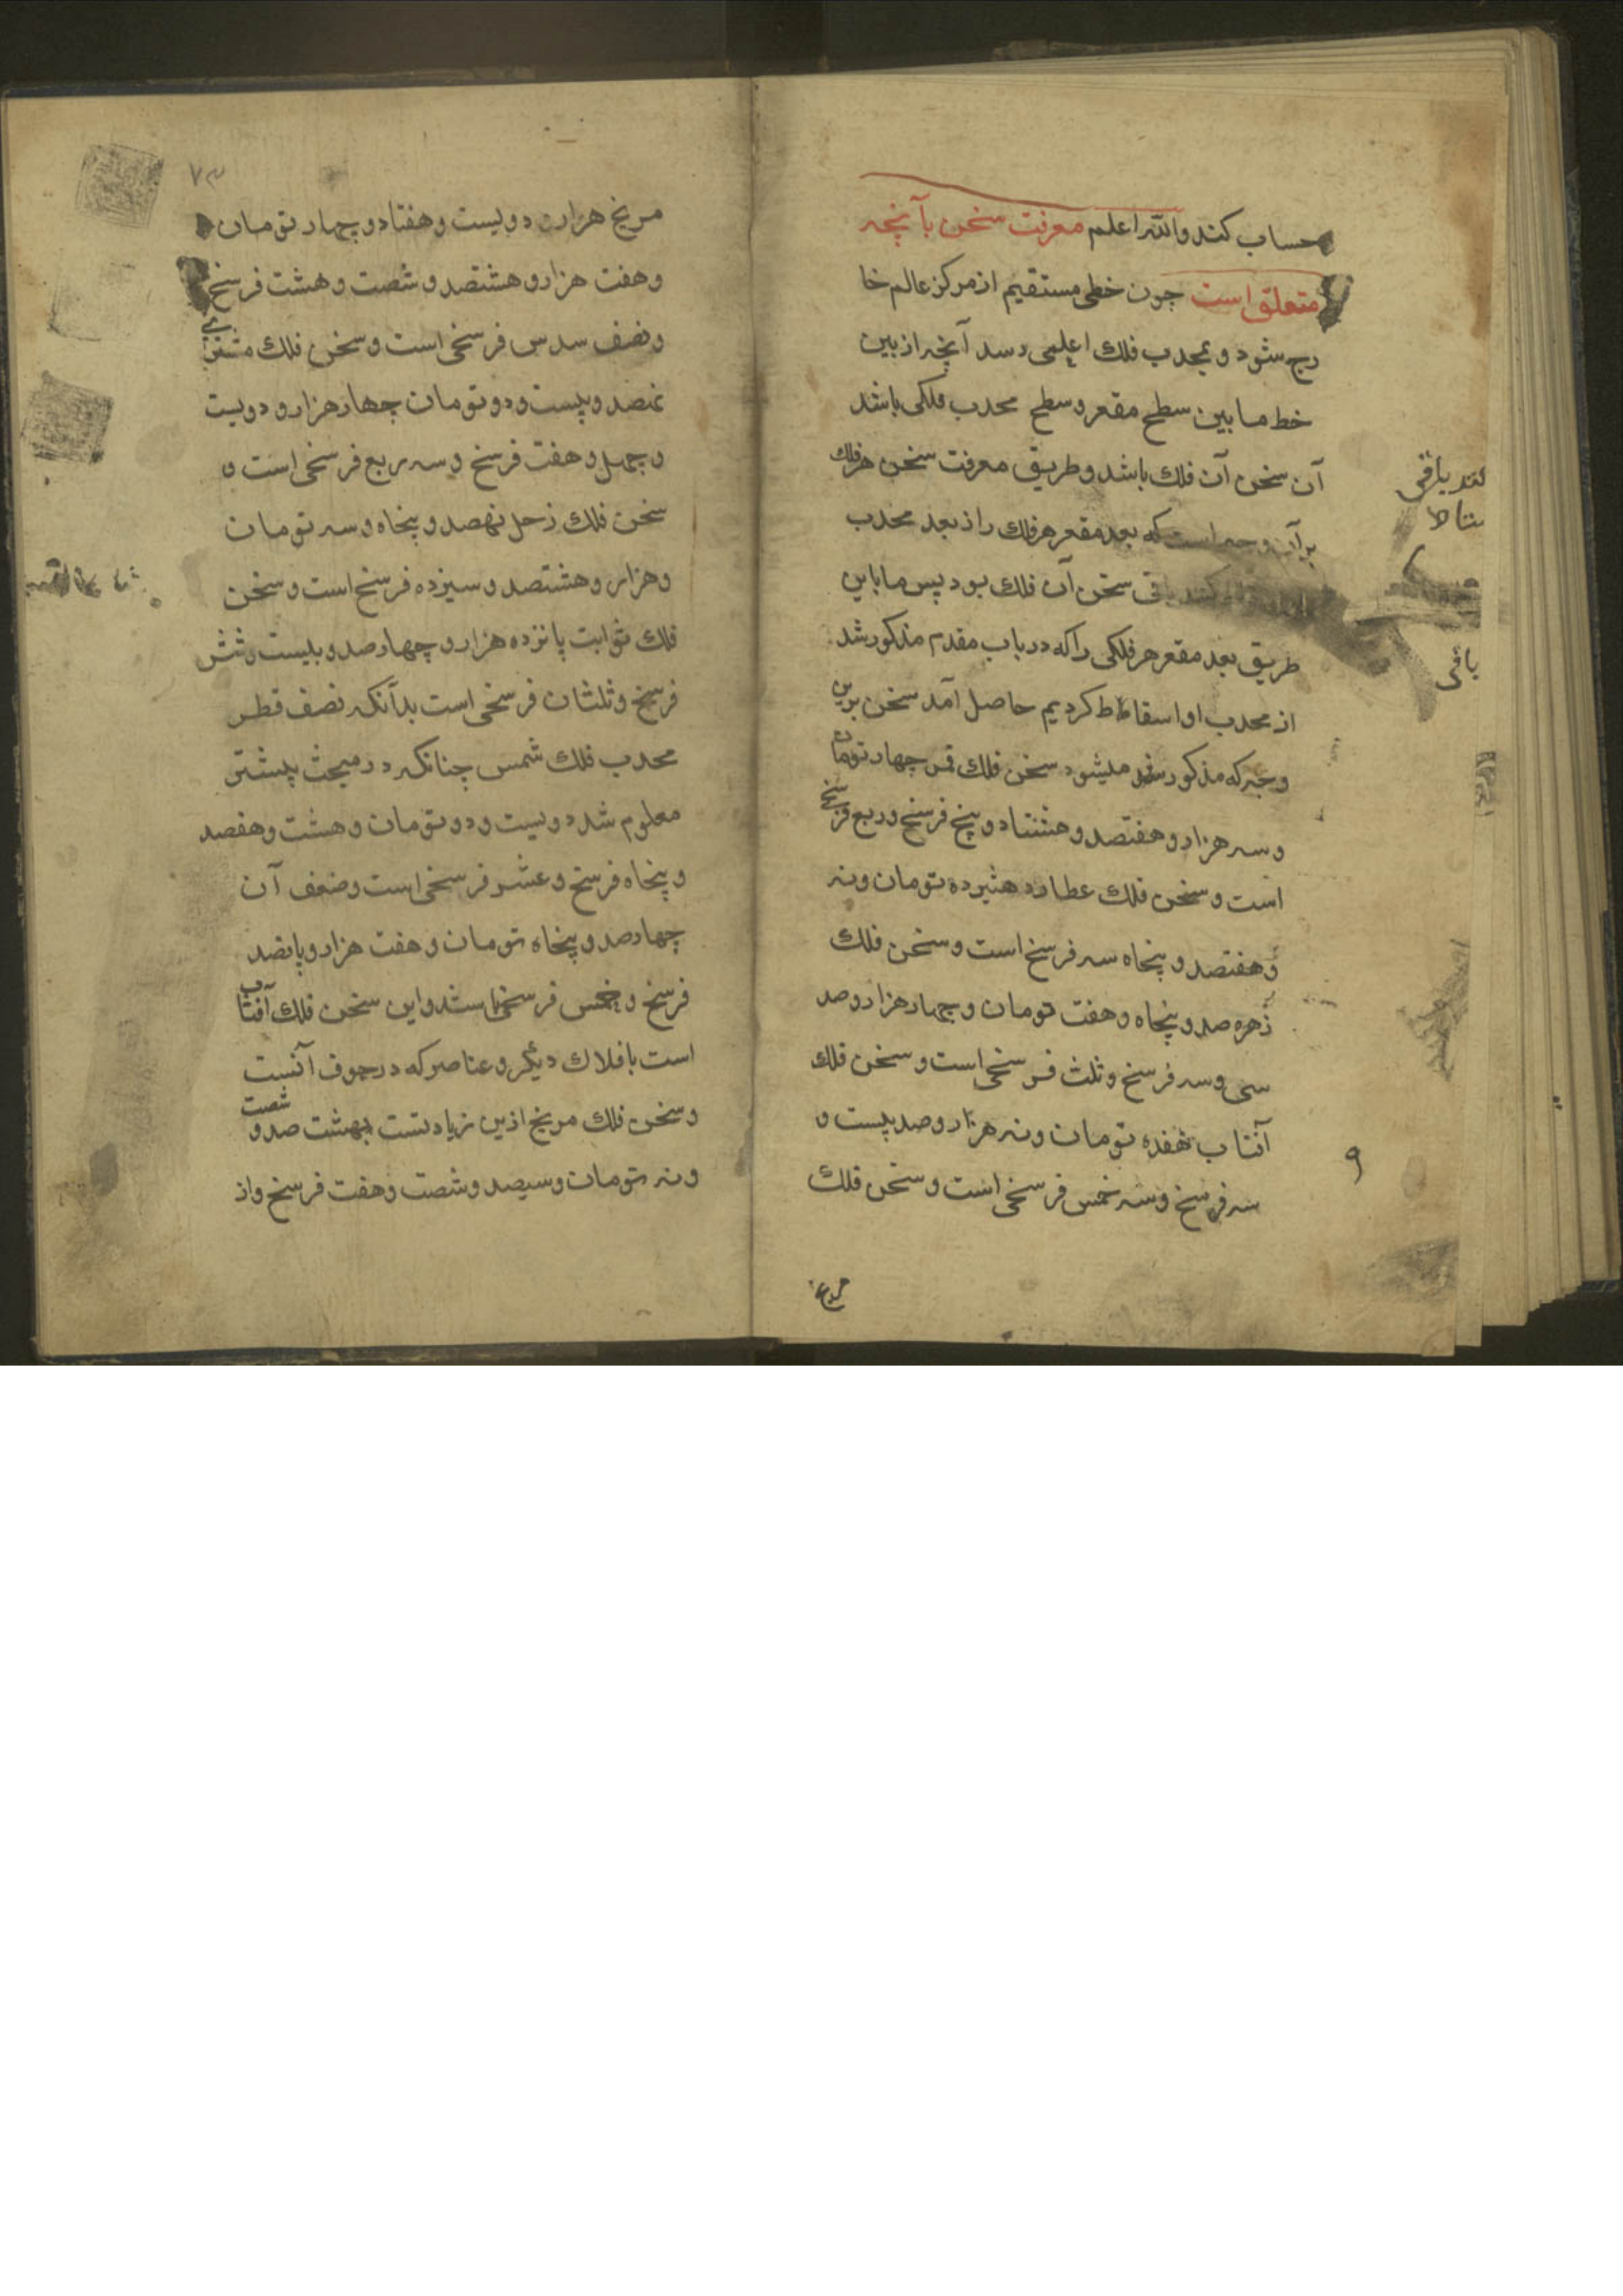 حساب کند والله اعلم معرفت سخن بآنچه
متعلق است چون خطی مستقیم از مرکز عالم خا
رج شود و بمحدب فلک اعلی رسد آنچه از بین
خط مابین سطح مقعر و سطح محدب فلکی باشد
آن سخن آن فلک باشد و طریق معرفت سخن هر فلک
بر آن وجه است که بعد مقعر هر فلک را از بعد محدب
کنند باقی سخن آن فلک بود پس ما باین
طریق بعد مقعر هر فلکی را که در باب مقدم مذکور شد
از محدب او اسقاط کردیم حاصل آمد سخن برین
وجه که مذکور میشود سخن فلک قمر چهار تومان
و سه هزار و هفتصد و هشتاد و پنج فرسخ و ربع فرسخ
است و سخن فلک عطارد هشرده تومان و نه
و هفتصد و پنجاه سه فرسخ است و سخن فلک
زهره صد و پنجاه و هفت تومان و چهار هزار و صد
سی و سه فرسخ و ثلث فرسخی است و سخن فلک
آفتاب هفده تومان و نه هزار و صد بیست و
سه فرسخ و سه خمس فرسخی است و سخن فلک
مریخ
باقی
باقی
۹
۷۳
مریخ هزار و دویست و هفتاد و چهار تومان
و هفت هزار و هشتصد و شصت و هشت فرسخ
و نصف سدس فرسخی است و سخن فلک مشتری
نهصد و بیست و دو تومان چهار هزار و دویست
و چهل و هفت فرسخ و سه ربع فرسخی است و
سخن فلک زحل نهصد و پنجاه و سه تومان
و هزار و هشتصد و سیزده فرسخ است و سخن
فلک ثوابت پانزده هزار و چهارصد و بیست و شش
فرسخ و ثلثان فرسخی است بدآنکه نصف قطر
محدب فلک شمس چنانکه در مبحث پیشتر
معلوم شد دویست و دو تومان و هشت و هفصد
و پنجاه فرسخ و عشر فرسخی است و ضعف آن
چهارصد و پنجاه تومان و هفت هزار و پانصد
فرسخ و خمس فرسخی باشد و این سخن فلک آفتاب
است بافلاک دیگر و عناصر که در جوف آنست
و سخن فلک مریخ ازین زیادتست بهشت صد و شصت
و نه تومان و سیصد و شصت و هفت فرسخ و از